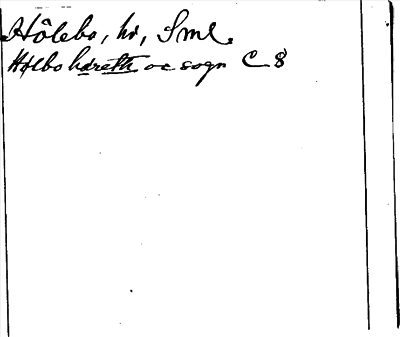 Hôlebo, hd, Sml.
Hølbo hdreth oc sogn C 8